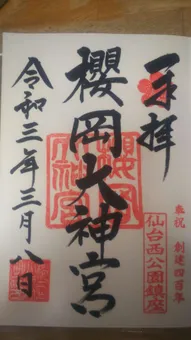 奉拝
櫻岡大神宮
令和三年三月八日
奉祝 創建四百年
仙台西公園鎮座
櫻岡大神宮